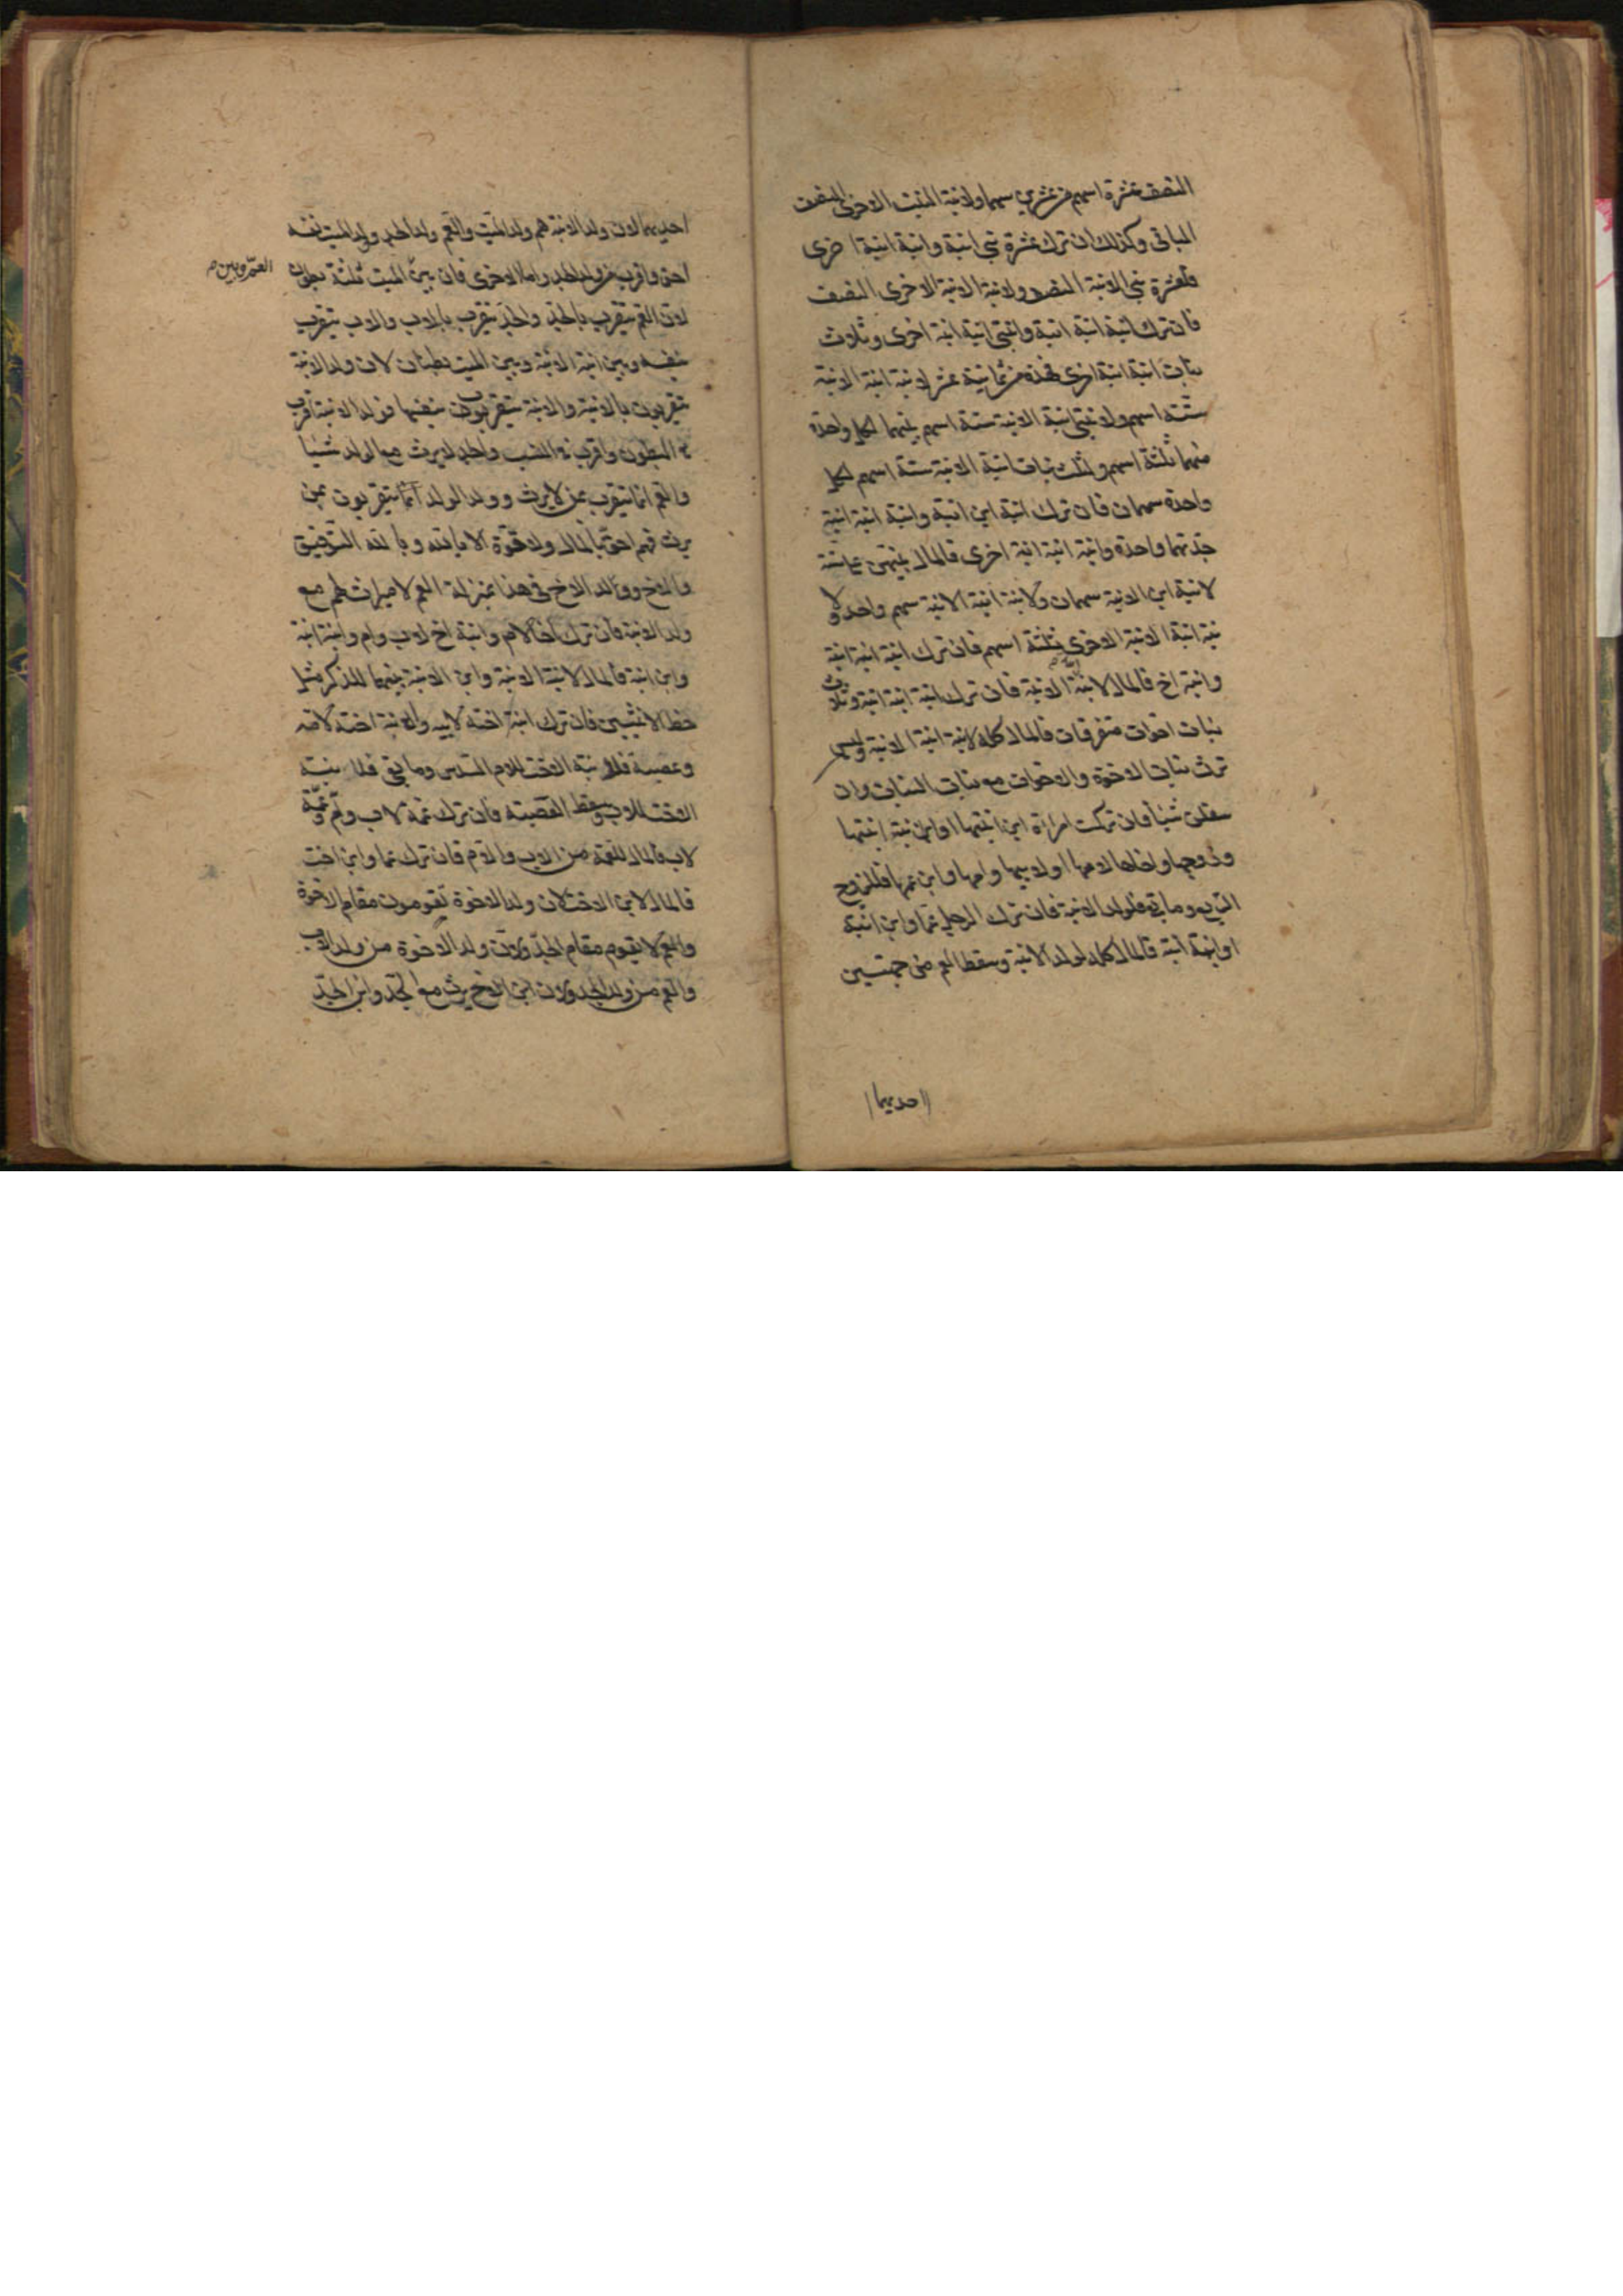 النصف عشرة اسهم من عشرين سهما ولابنة البنت الاخرى النصف
الباقى وكذلك ان ترك عشرة بنى ابنة وابنة ابنة اخرى
فلعشرة بنى الابنة النصف ولابنة الابنة الاخرى النصف
فان ترك ابنة ابنة ابنة وابنتى ابنة ابنة اخرى وثلاث
بنات ابنة ابنة اخرى فهذه من ثمانية عشر لابنة ابنة الابنة
ستة اسهم ولابنتى ابنة الابنة ستة اسهم بينهما لكل واحدة
منهما ثلثة اسهم ولثلث بنات ابنة الابنة ستة اسهم لكل
واحدة سهمان فان ترك ابنة ابن ابنة وابنة ابنة ابنة
جدتهما واحدة وابنة ابنة ابنة اخرى فالمال بينهن على ستة
لابنة ابن الابنة سهمان ولابنة ابنة الابنة سهم واحد ولا
بنة ابنة الابنة الاخرى ثلثة اسهم فان ترك ابنة ابنة ابنة
وابنة اخ فالمال لابنة ابنة الابنة فان ترك ابنة ابنة ابنة وثلاث
بنات اخوات متفرقات فالمال كله لابنة ابنة الابنة وليس
ترث بنات الاخوة والاخوات مع بنات البنات وان
سفلن شيئا فان تركت امراة ابن ابنتها او ابن بنة ابنتها
وزوجها واخاها لامها او لابيها وامها وابن عمها فللزوج
الربع وما بقى فلولد الابنة فان ترك الرجل عما وابن ابنة
او ابنة ابنة فالمال كله لولد الابنة وسقط العم من جهتين
احديهما
احديهما لان ولد الابنة هم ولد الميت والعم ولد الجد وولد الميت نفسه
احق واقرب من ولد الجد واما الاخرى فان بين الميت ثلثة بطون
العم وبين صح
لان العم يتقرب بالجد والجد يتقرب بالاب والاب يتقرب
بنفسه وبين ابنة الابنة وبين الميت بطنان لان ولد الابنة
يتقربون بالابنة والابنة تتقرب بنفسها فولد الابنة اقرب
فى البطون واقرب فى النسب والجد لا يرث مع الولد شيئا
والعم انما يتقرب بمن لا يرث وولد الولد انما يتقربون بمن
يرث فهم احق بالمال ولا قوة الا بالله وبالله التوفيق
والاخ وولد الاخ فى هذا بمنزلة العم لا ميراث لهم مع
ولد الابنة فان ترك اخا لام وابنة اخ لاب وام وابنة ابنة
وابن ابنة فالمال لابنة الابنة وابن الابنة بينهما للذكر مثل
حظ الانثيين فان ترك ابنة اخته لابيه وابنة اخته لامه
وعصبة فلابنة الاخت للام السدس وما بقى فلابنة
الاخت للاب وسقط العصبة فان ترك عمة لاب وام وعمة
لاب فالمال للعمة من الاب والام فان ترك عما وابن اخت
فالمال لابن الاخت لان ولد الاخوة يقومون مقام الاخوة
والعم لا يقوم مقام الجد ولان ولد الاخوة من ولد الاب
والعم من ولد الجد ولان ابن الاخ يرث مع الجد وابن الجد